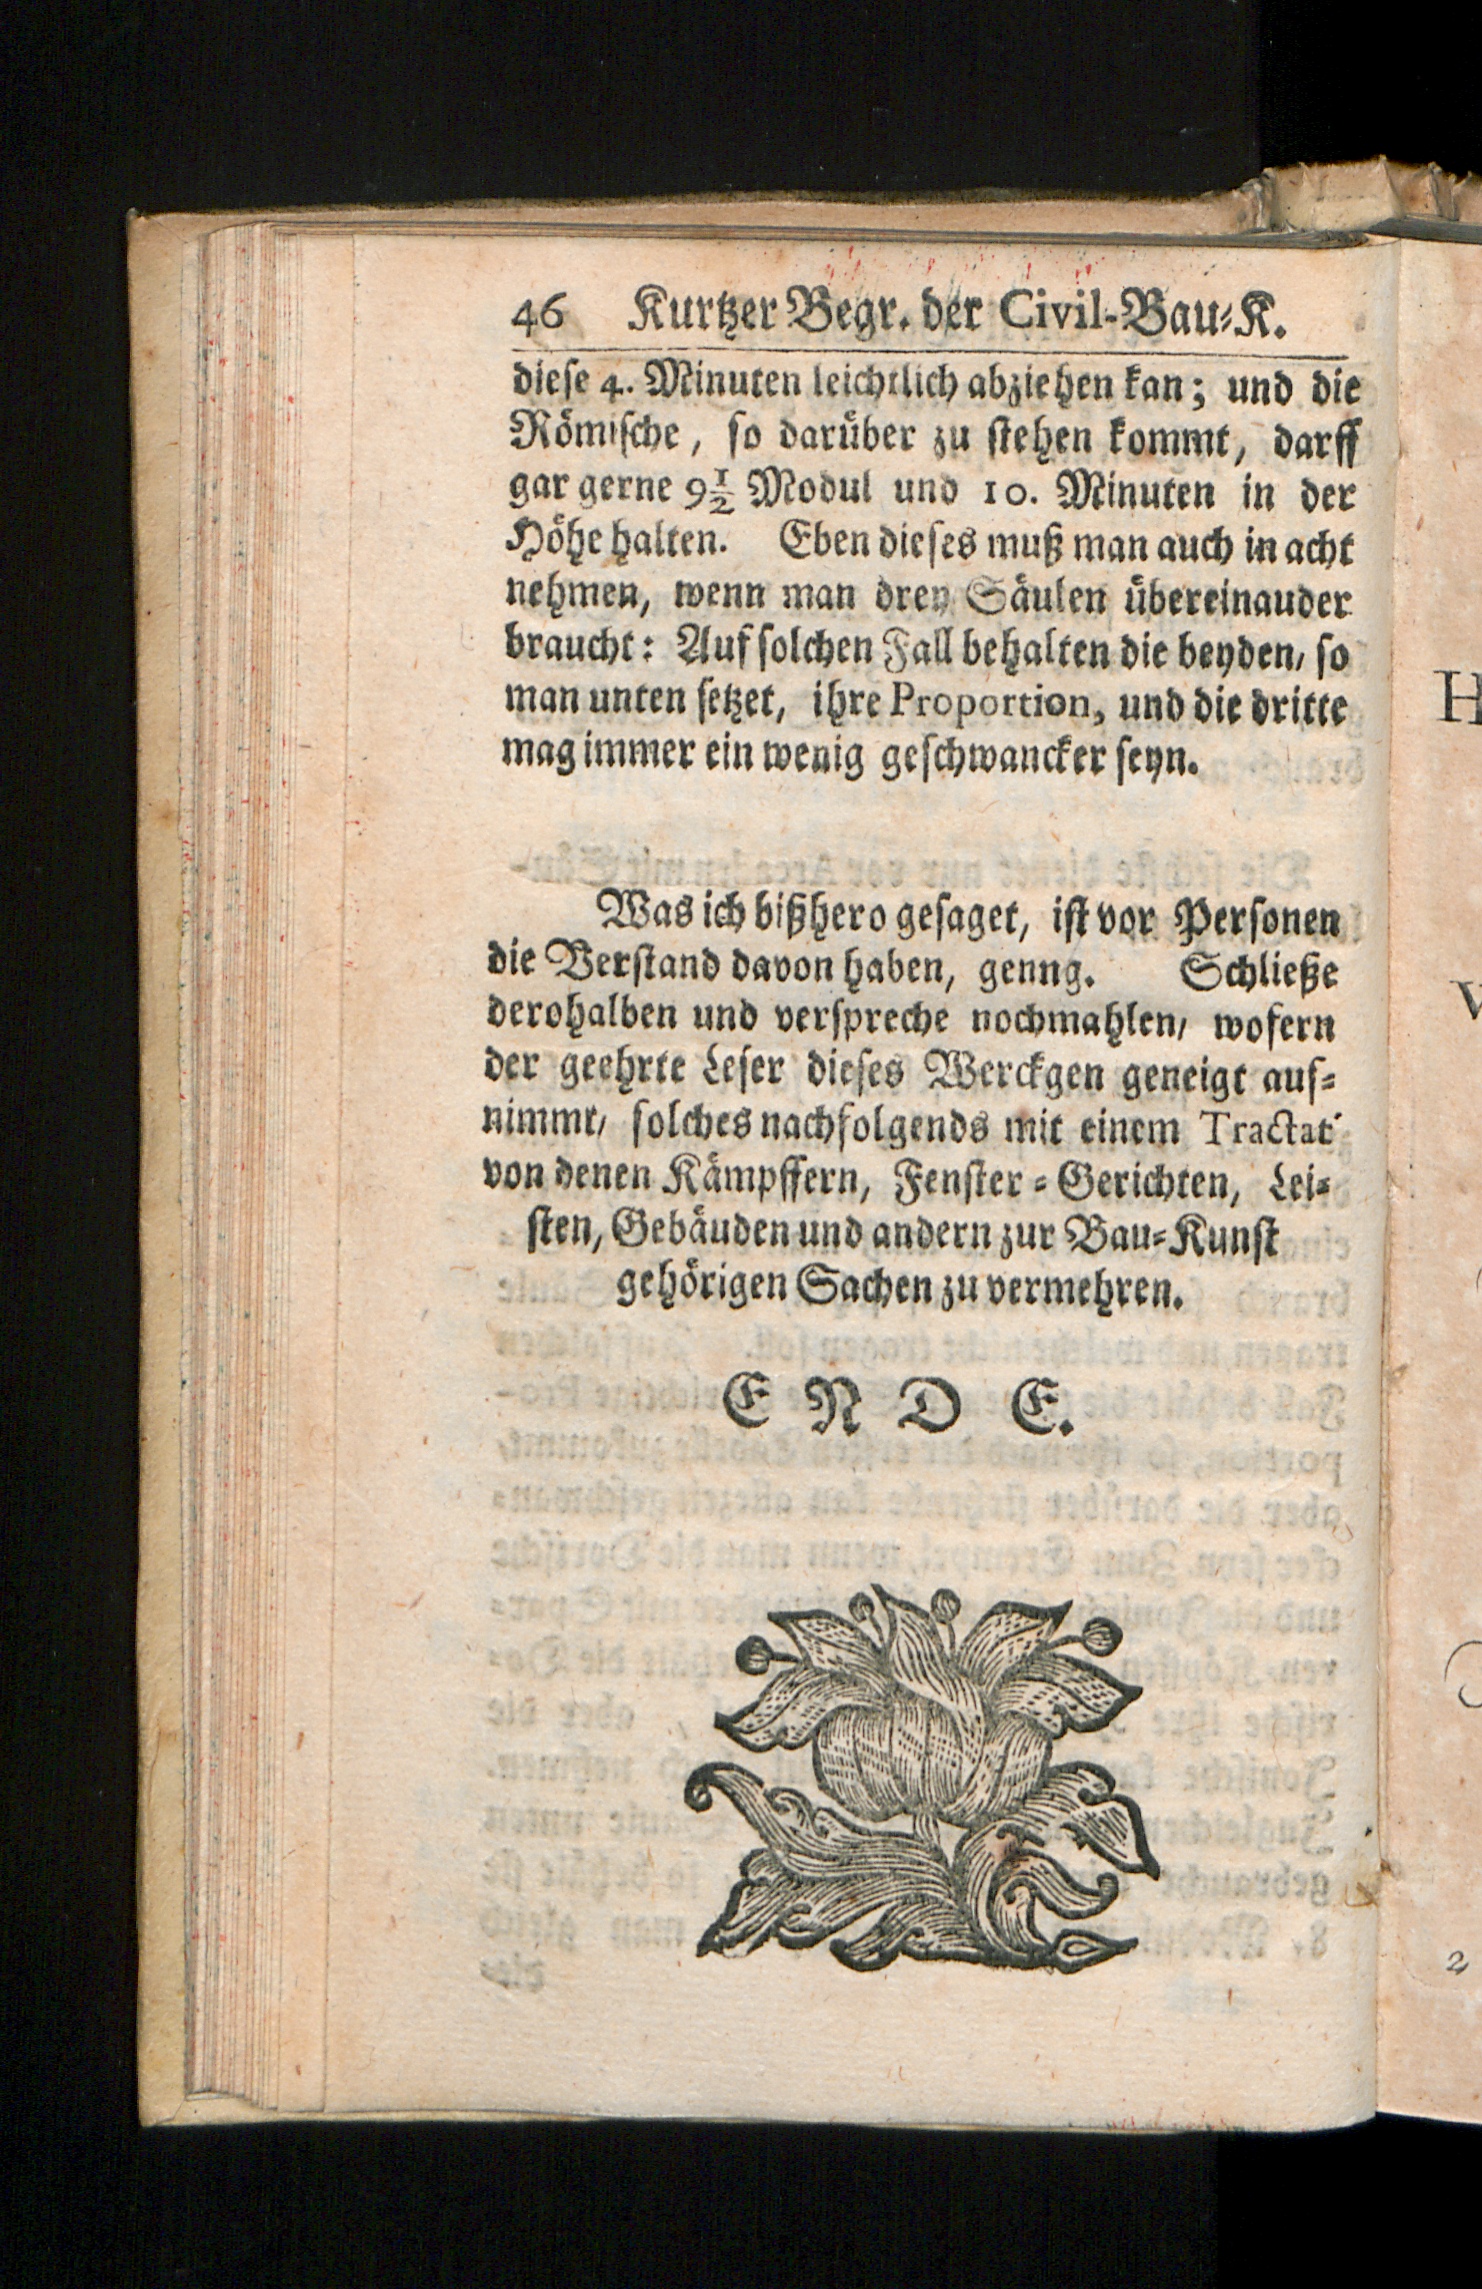 46 Kurtzer Begr. der Civil-Bau-K.
diese 4. Minuten leichtlich abziehen kan; und die
Römische, so darüber zu stehen kommt, darff
gar gerne 9½ Modul und 10. Minuten in der
Höhe halten. Eben dieses muß man auch in acht
nehmen, wenn man drey Säulen übereinauder
braucht: Auf solchen Fall behalten die beyden, so
man unten setzet, ihre Proportion, und die dritte
mag immer ein wenig geschwancker seyn.
Was ich bißhero gesaget, ist vor Personen
die Verstand davon haben, genng. Schließe
derohalben und verspreche nochmahlen, wofern
der geehrte Leser dieses Werckgen geneigt auf-
nimmt, solches nachfolgends mit einem Tractat
von denen Kämpffern, Fenster-Gerichten, Lei-
sten, Gebäuden und andern zur Bau-Kunst
gehörigen Sachen zu vermehren.
E N D E.